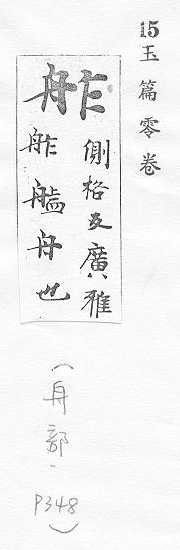 15玉篇零卷
舴 側格反廣雅
舴艋舟也
(舟部, P348)